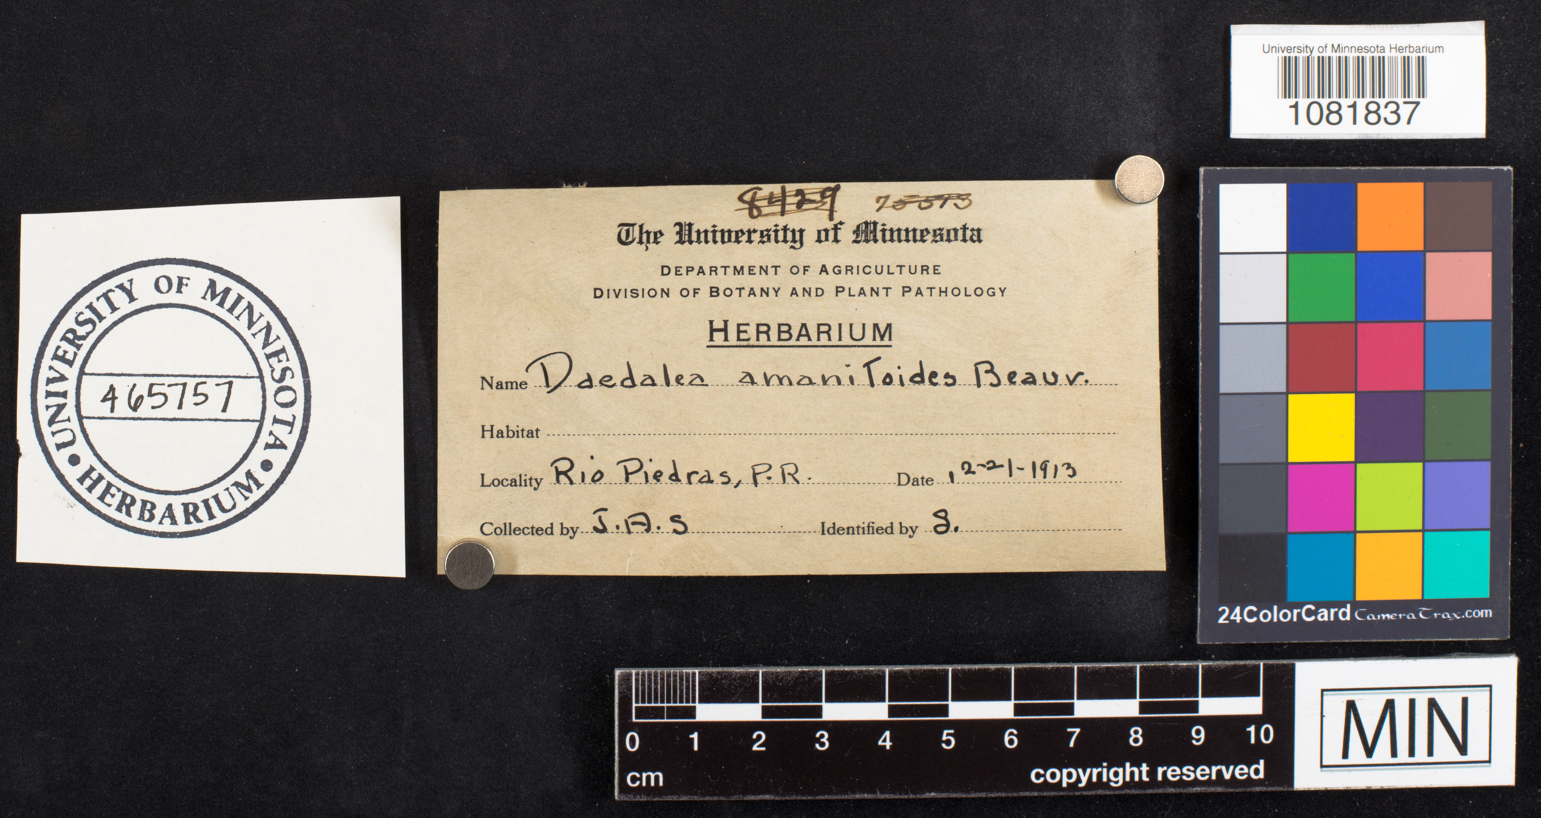 University of Minnesota Herbarium
1081837
UNIVERSITY OF MINNESOTA
465757
HERBARIUM
8429 75573
The University of Minnesota
DEPARTMENT OF AGRICULTURE
DIVISION OF BOTANY AND PLANT PATHOLOGY
HERBARIUM
Name Daedalea amanitoides Beauv.
Habitat
Locality Rio Piedras, P.R. Date 12-21-1913
Collected by J.A.S Identified by S.
24ColorCard CameraTrax.com
0 1 2 3 4 5 6 7 8 9 10
cm
copyright reserved
MIN